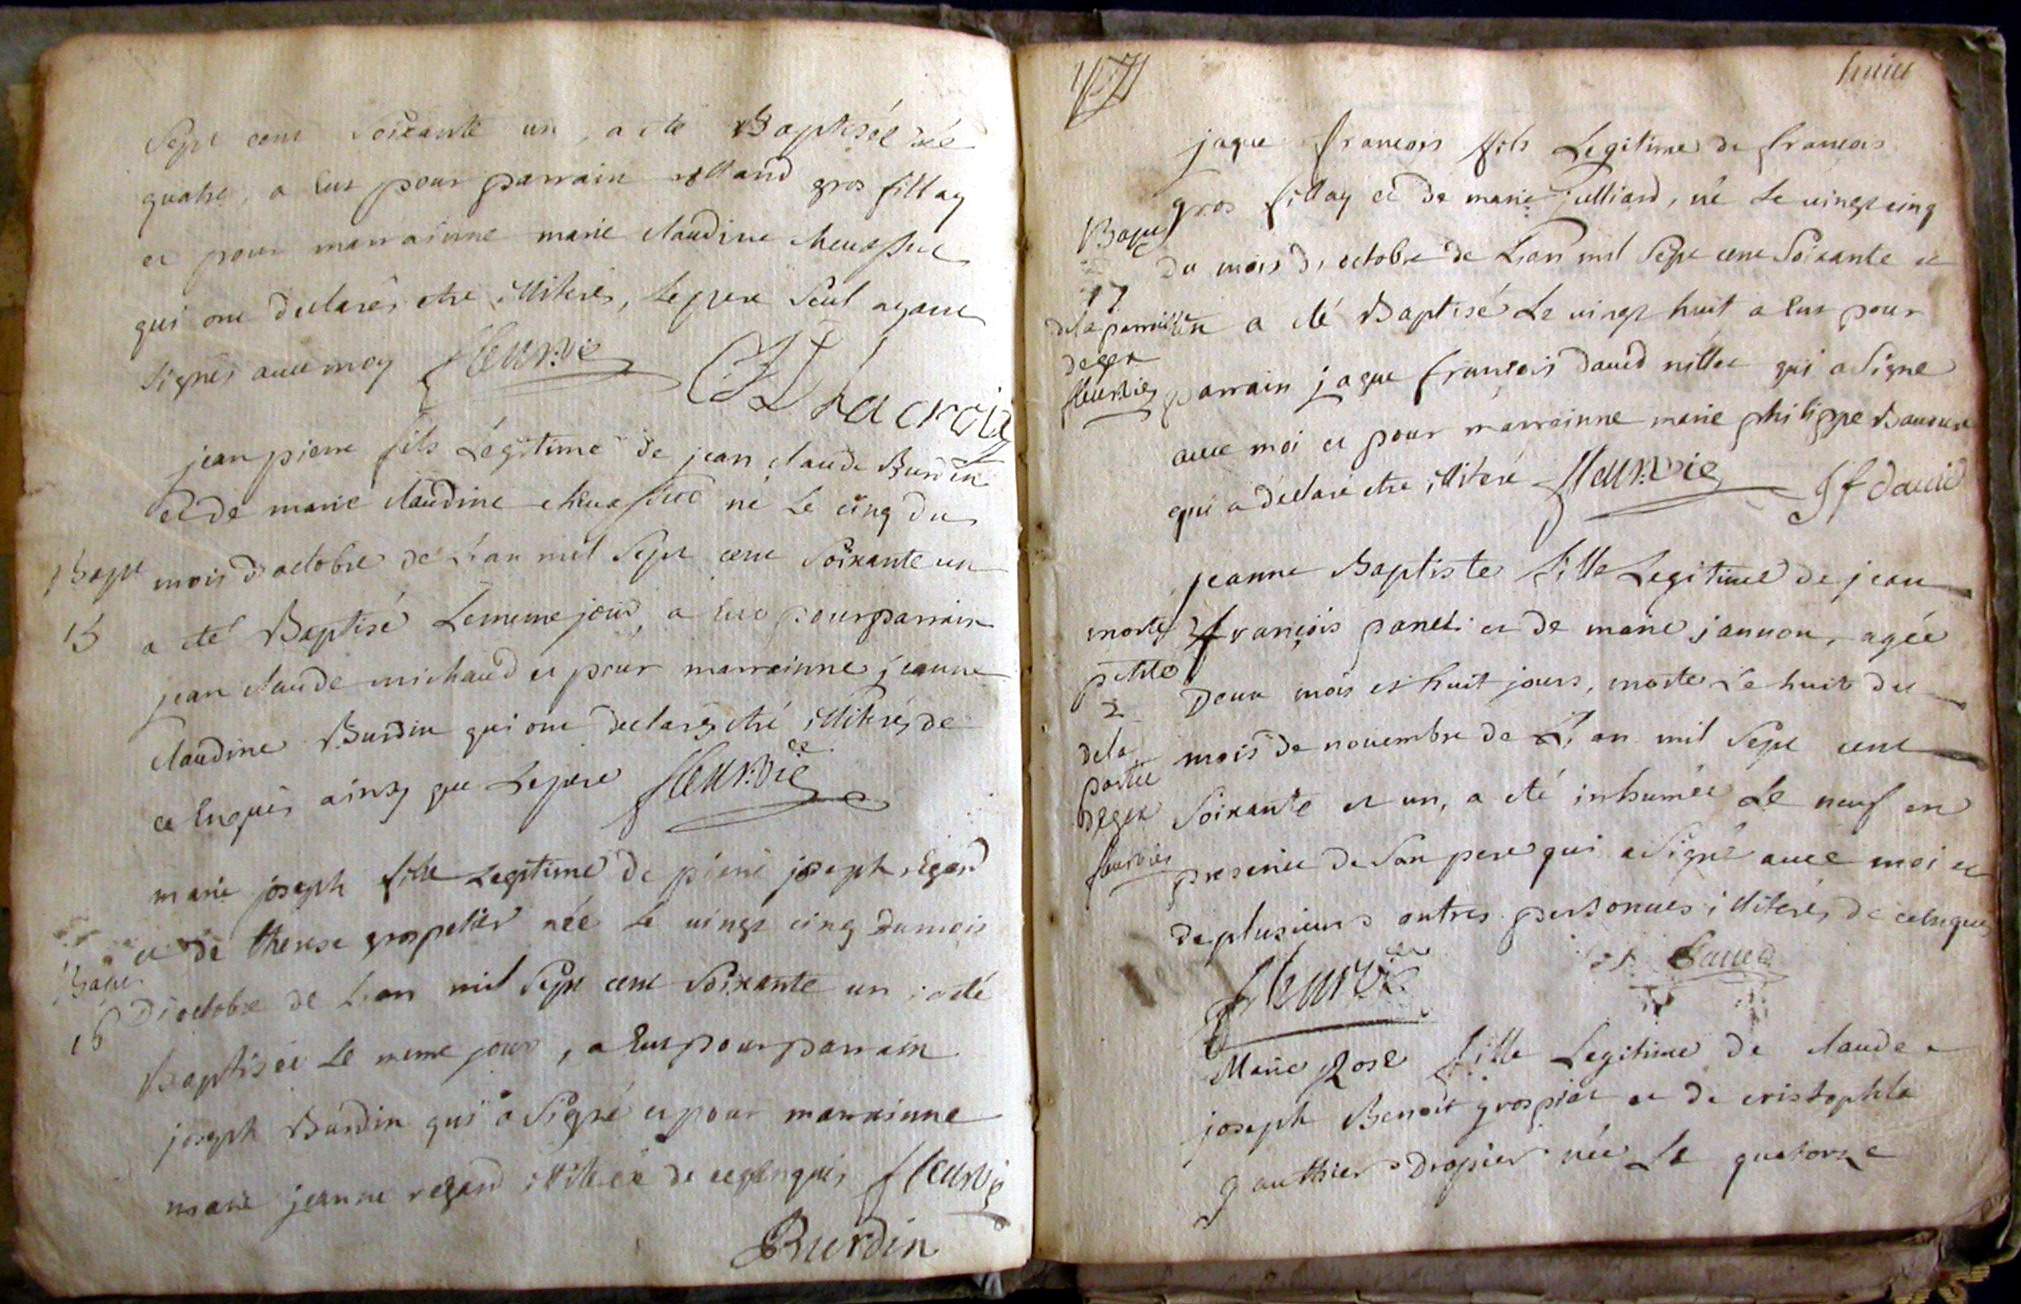 Sept cent soixante un, a été Baptisée le
quatre, a Eut pour parrain rolland gros fillay
et pour marrainne marie claudine chevassue
qui ont declarés etre illiterés, le pere seul ayant
signés avec moy fleurvie
Lacroix
jean pierre fils Légitime de jean claude Burdin
et de marie claudine chevassue né Le cinq du
Bapt mois d'octobre de L'an mil sept cent soixante un
15 a été Baptisé Le meme jour, a Eut pour parrain
jean claude michaud et pour marrainne jeanne
claudine Burdin qui ont declarés etré illiterés de
ce Enquis ainsy que Le pere fleurvie
marie joseph fille Legitime de pierre joseph regard
et de therese grospelier née Le vingt cinq du mois
Bapt
16 D'octobre de L'an mil sept cent soixante un a eté
Baptisée Le meme jour, a Eut pour parrain
joseph Burdin qui a signé et pour marrainne
marie jeanne regard illiterée de ce enquis fleurvie
Burdin
huit
jaque francois fils Legitime de francois
gros fillay et de marie julliard, né Le vingt cinq
Bapt
17
Du mois d'octobre de L'an mil sept cent soixante et
de la
de gex
fleurvie
un a eté Baptisé Le vingt huit a Eut pour
parrain jaque francois david millet qui a signe
avec moi et pour marrainne marie philippe
qui a declaré etre illiteré fleurvie J f david
jeanne Baptiste fille Legitime de jean
morte
petite
2
francois panet et de marie jannon, agée
Deux mois et huit jours, morte Le huit du
de la
partie
de gex
fleurvie
mois de novembre de L'an mil sept cent
soixante et un, a eté inhumée Le neuf en
presence de son pere qui a signé avec moi et
de plusieurs autres personnes illiterés de ce enquis
fleurvie
Marie Rose fille Legitime de claude
joseph Benoit grospiat et de cristophla
gauthier dropier née Le quatorze